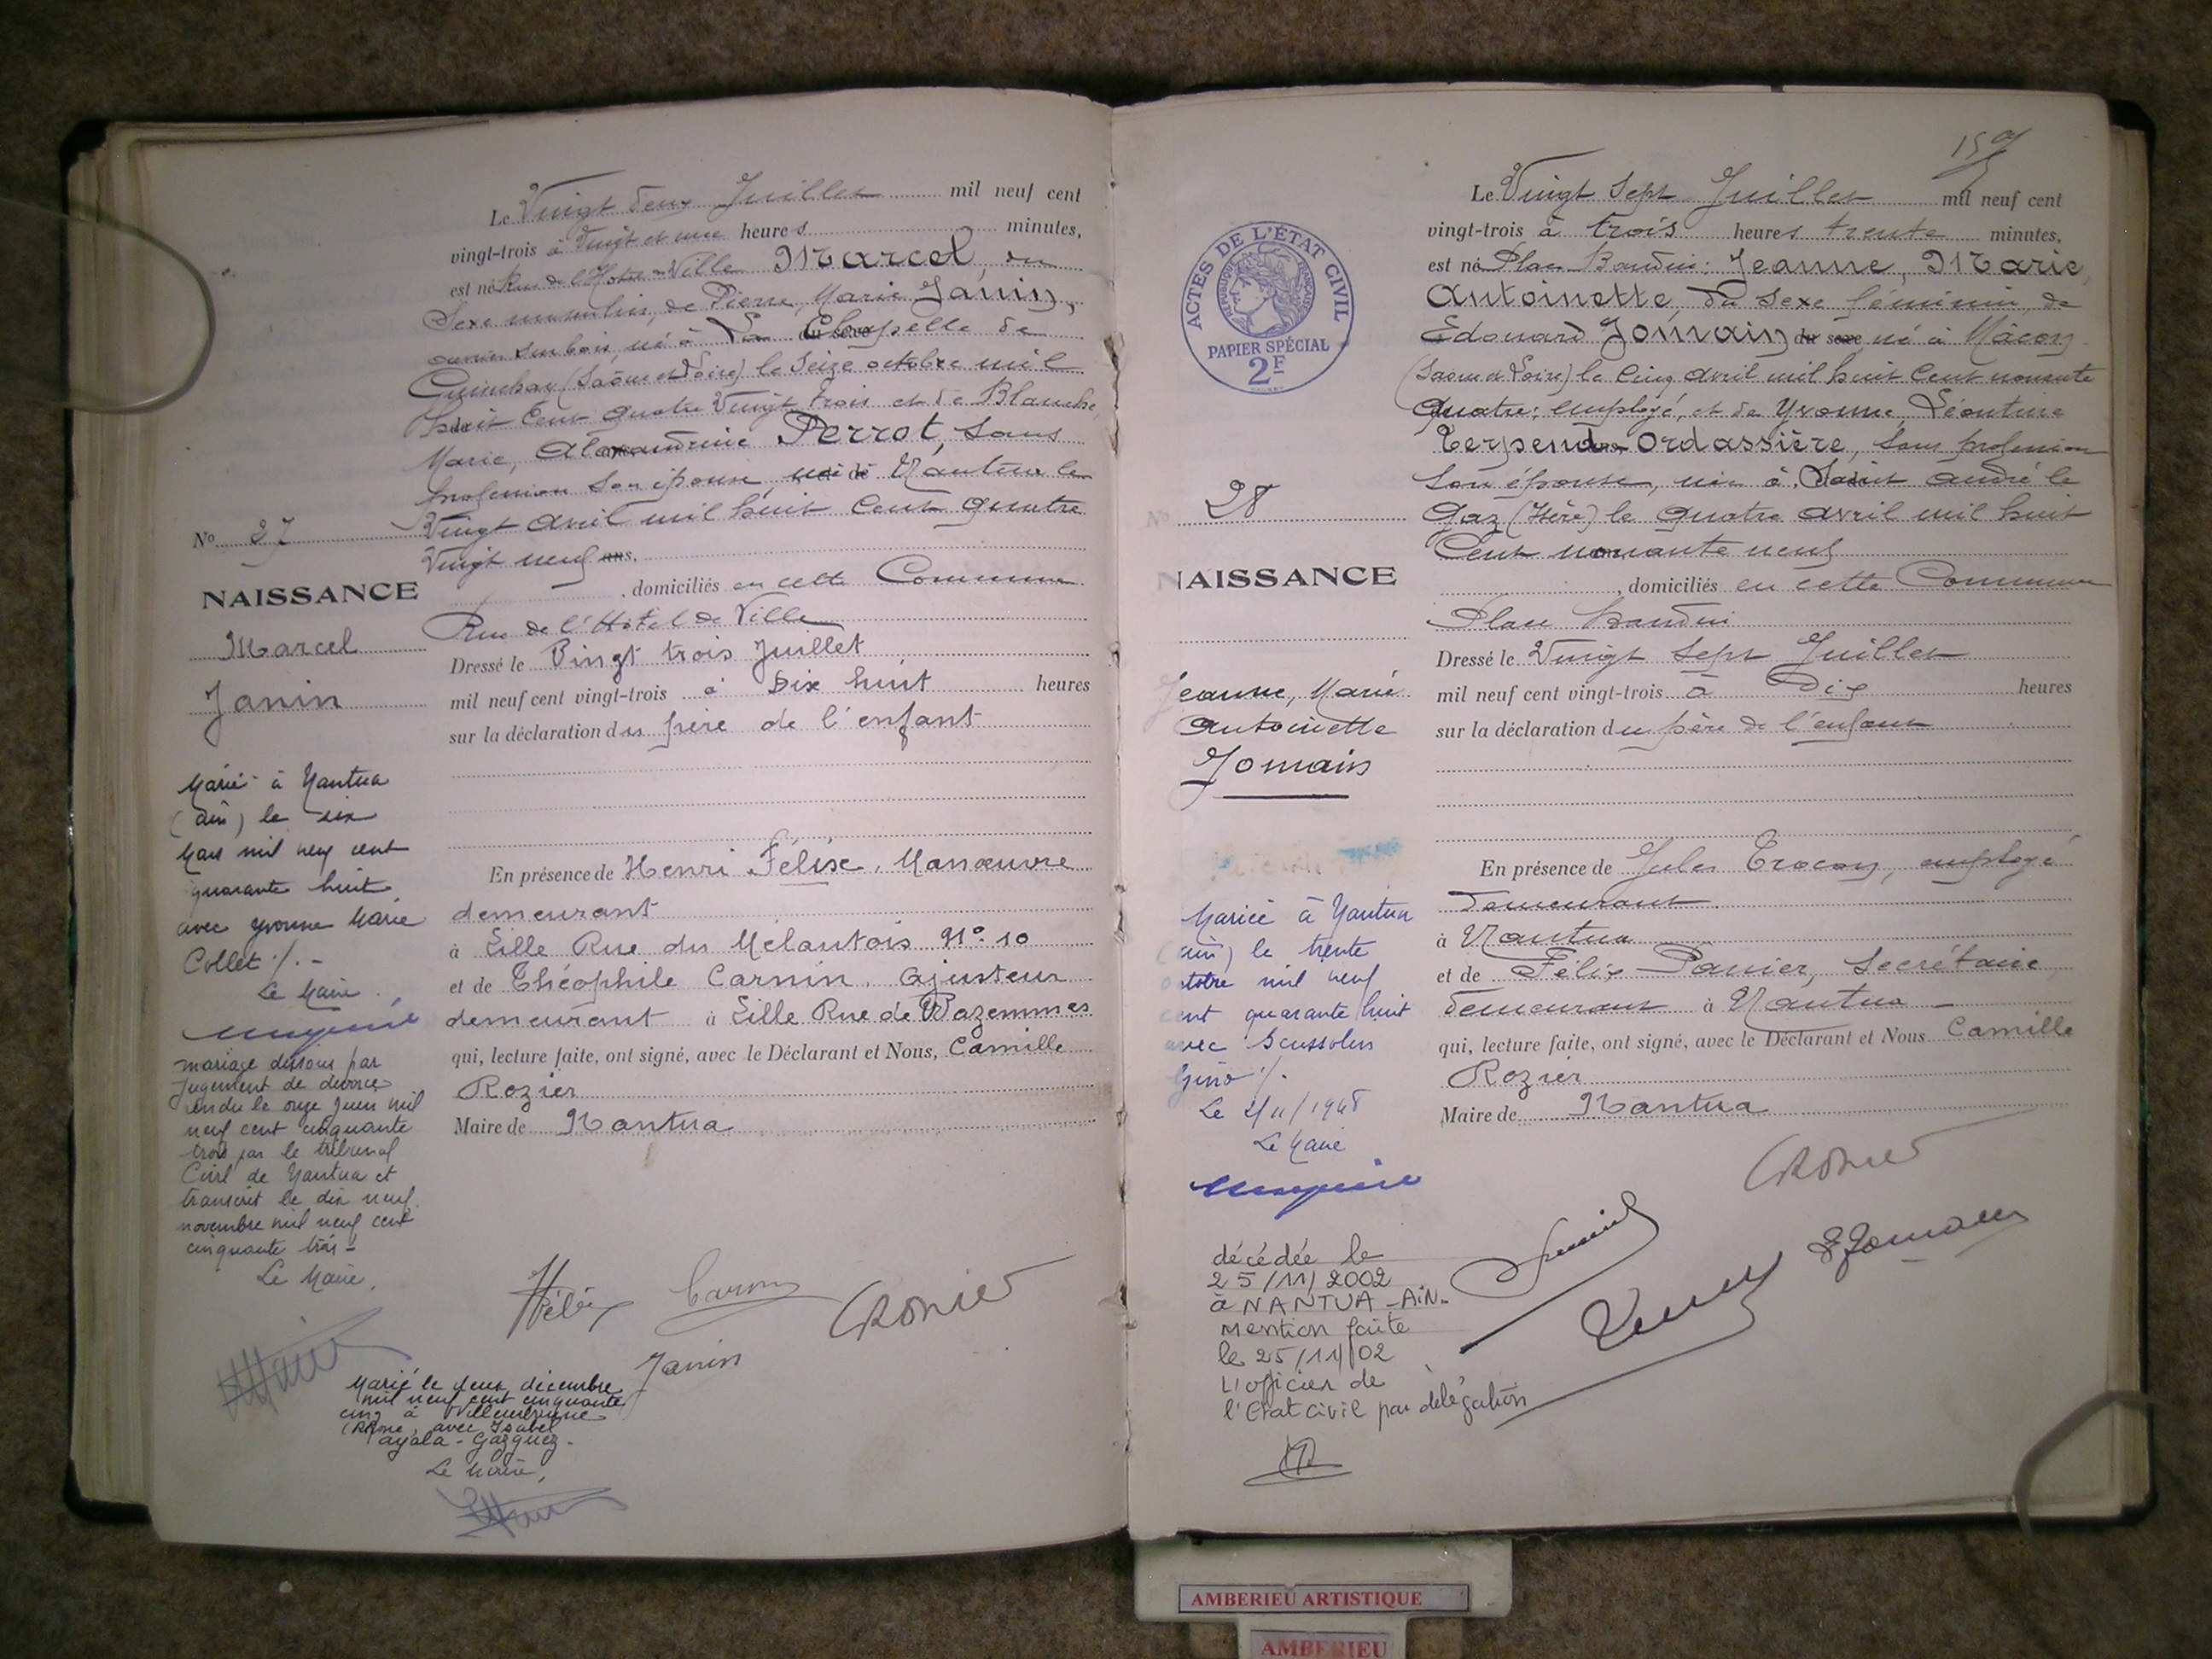 Le Vingt deux Juillet mil neuf cent
vingt-trois à Vingt et une heures minutes,
est né Rue de l'Hôtel-de-Ville Marcel, du
Sexe masculin, de Pierre, Marie Janin,
ouvrier sur bois, né à La du sexe Chapelle de
Guinchay (Saône et Loire) le Seize octobre mil
huit Cent quatre Vingt trois et de Blanche,
Marie, Alexandrine Perrot, sans
profession son épouse, née à Nantua le
Vingt avril mil huit Cent quatre
Vingt neuf ans.
, domiciliés en cette Commune
Rue de l'Hôtel de Ville
Dressé le Vingt trois Juillet
mil neuf cent vingt-trois à Dix huit heures
sur la déclaration du père de l'enfant
En présence de Henri Félix, Manœuvre
demeurant
à Lille Rue du Mélantois N° 10
et de Théophile Carnin, Ajusteur
demeurant à Lille Rue de Wazemmes
qui, lecture faite, ont signé, avec le Déclarant et Nous, Camille
Rozier
Maire de Nantua
Félix
Janin
CRozier
No 27
NAISSANCE
Marcel
Janin
Marié à Nantua
(Ain) le six
Mars mil neuf cent
quarante huit
avec Yvonne Marie
Collet ./. -
Le Maire
mariage dissous par
Jugement de divorce
rendu le onze Juin mil
neuf cent cinquante
trois par le tribunal
Civil de Nantua et
transcrit le dix neuf
novembre mil neuf cent
cinquante trois -
Le Maire,
Marié le deux décembre
mil neuf cent cinquante
cinq à Villeurbanne
(Rhône) avec Isabel
Ayala - Gazquez -
Le Maire,
159
ACTES DE L'ÉTAT CIVIL
RÉPUBLIQUE FRANÇAISE
PAPIER SPÉCIAL
2F
Le Vingt Sept Juillet mil neuf cent
vingt-trois à trois heures trente minutes,
est né Place Baudin: Jeanne, Marie
Antoinette du sexe féminin, de
Edouard Jomain du sexe né à Mâcon
(Saône et Loire) le Cinq avril mil huit Cent nonante
quatre; employé, et de Yvonne Léontine
Terpend-Ordassière, sans profession
son épouse, née à Saint André le
Gaz (Isère) le quatre avril mil huit
Cent nonante neuf
, domiciliés en cette Commune
Place Baudin
Dressé le Vingt Sept Juillet
mil neuf cent vingt-trois à Dix heures
sur la déclaration du père de l'enfant
En présence de Jules Trocon, employé
demeurant
à Nantua
et de Félix Panier, Secrétaire
demeurant à Nantua
qui, lecture faite, ont signé, avec le Déclarant et Nous Camille
Rozier
Maire de Nantua
CRozier
Jomain
No 28
NAISSANCE
Jeanne, Marie
Antoinette
Jomain
Mariée à Nantua
(Ain) le trente
octobre mil neuf
cent quarante huit
avec Scussolin
Gino ./.
Le 2/11/1948
Le Maire
décédée le
25/11/2002
à NANTUA - AiN -
Mention faite
le 25/11/02
L'officier de
l'Etat Civil par délégation
AMBERIEU ARTISTIQUE
AMBERIEU